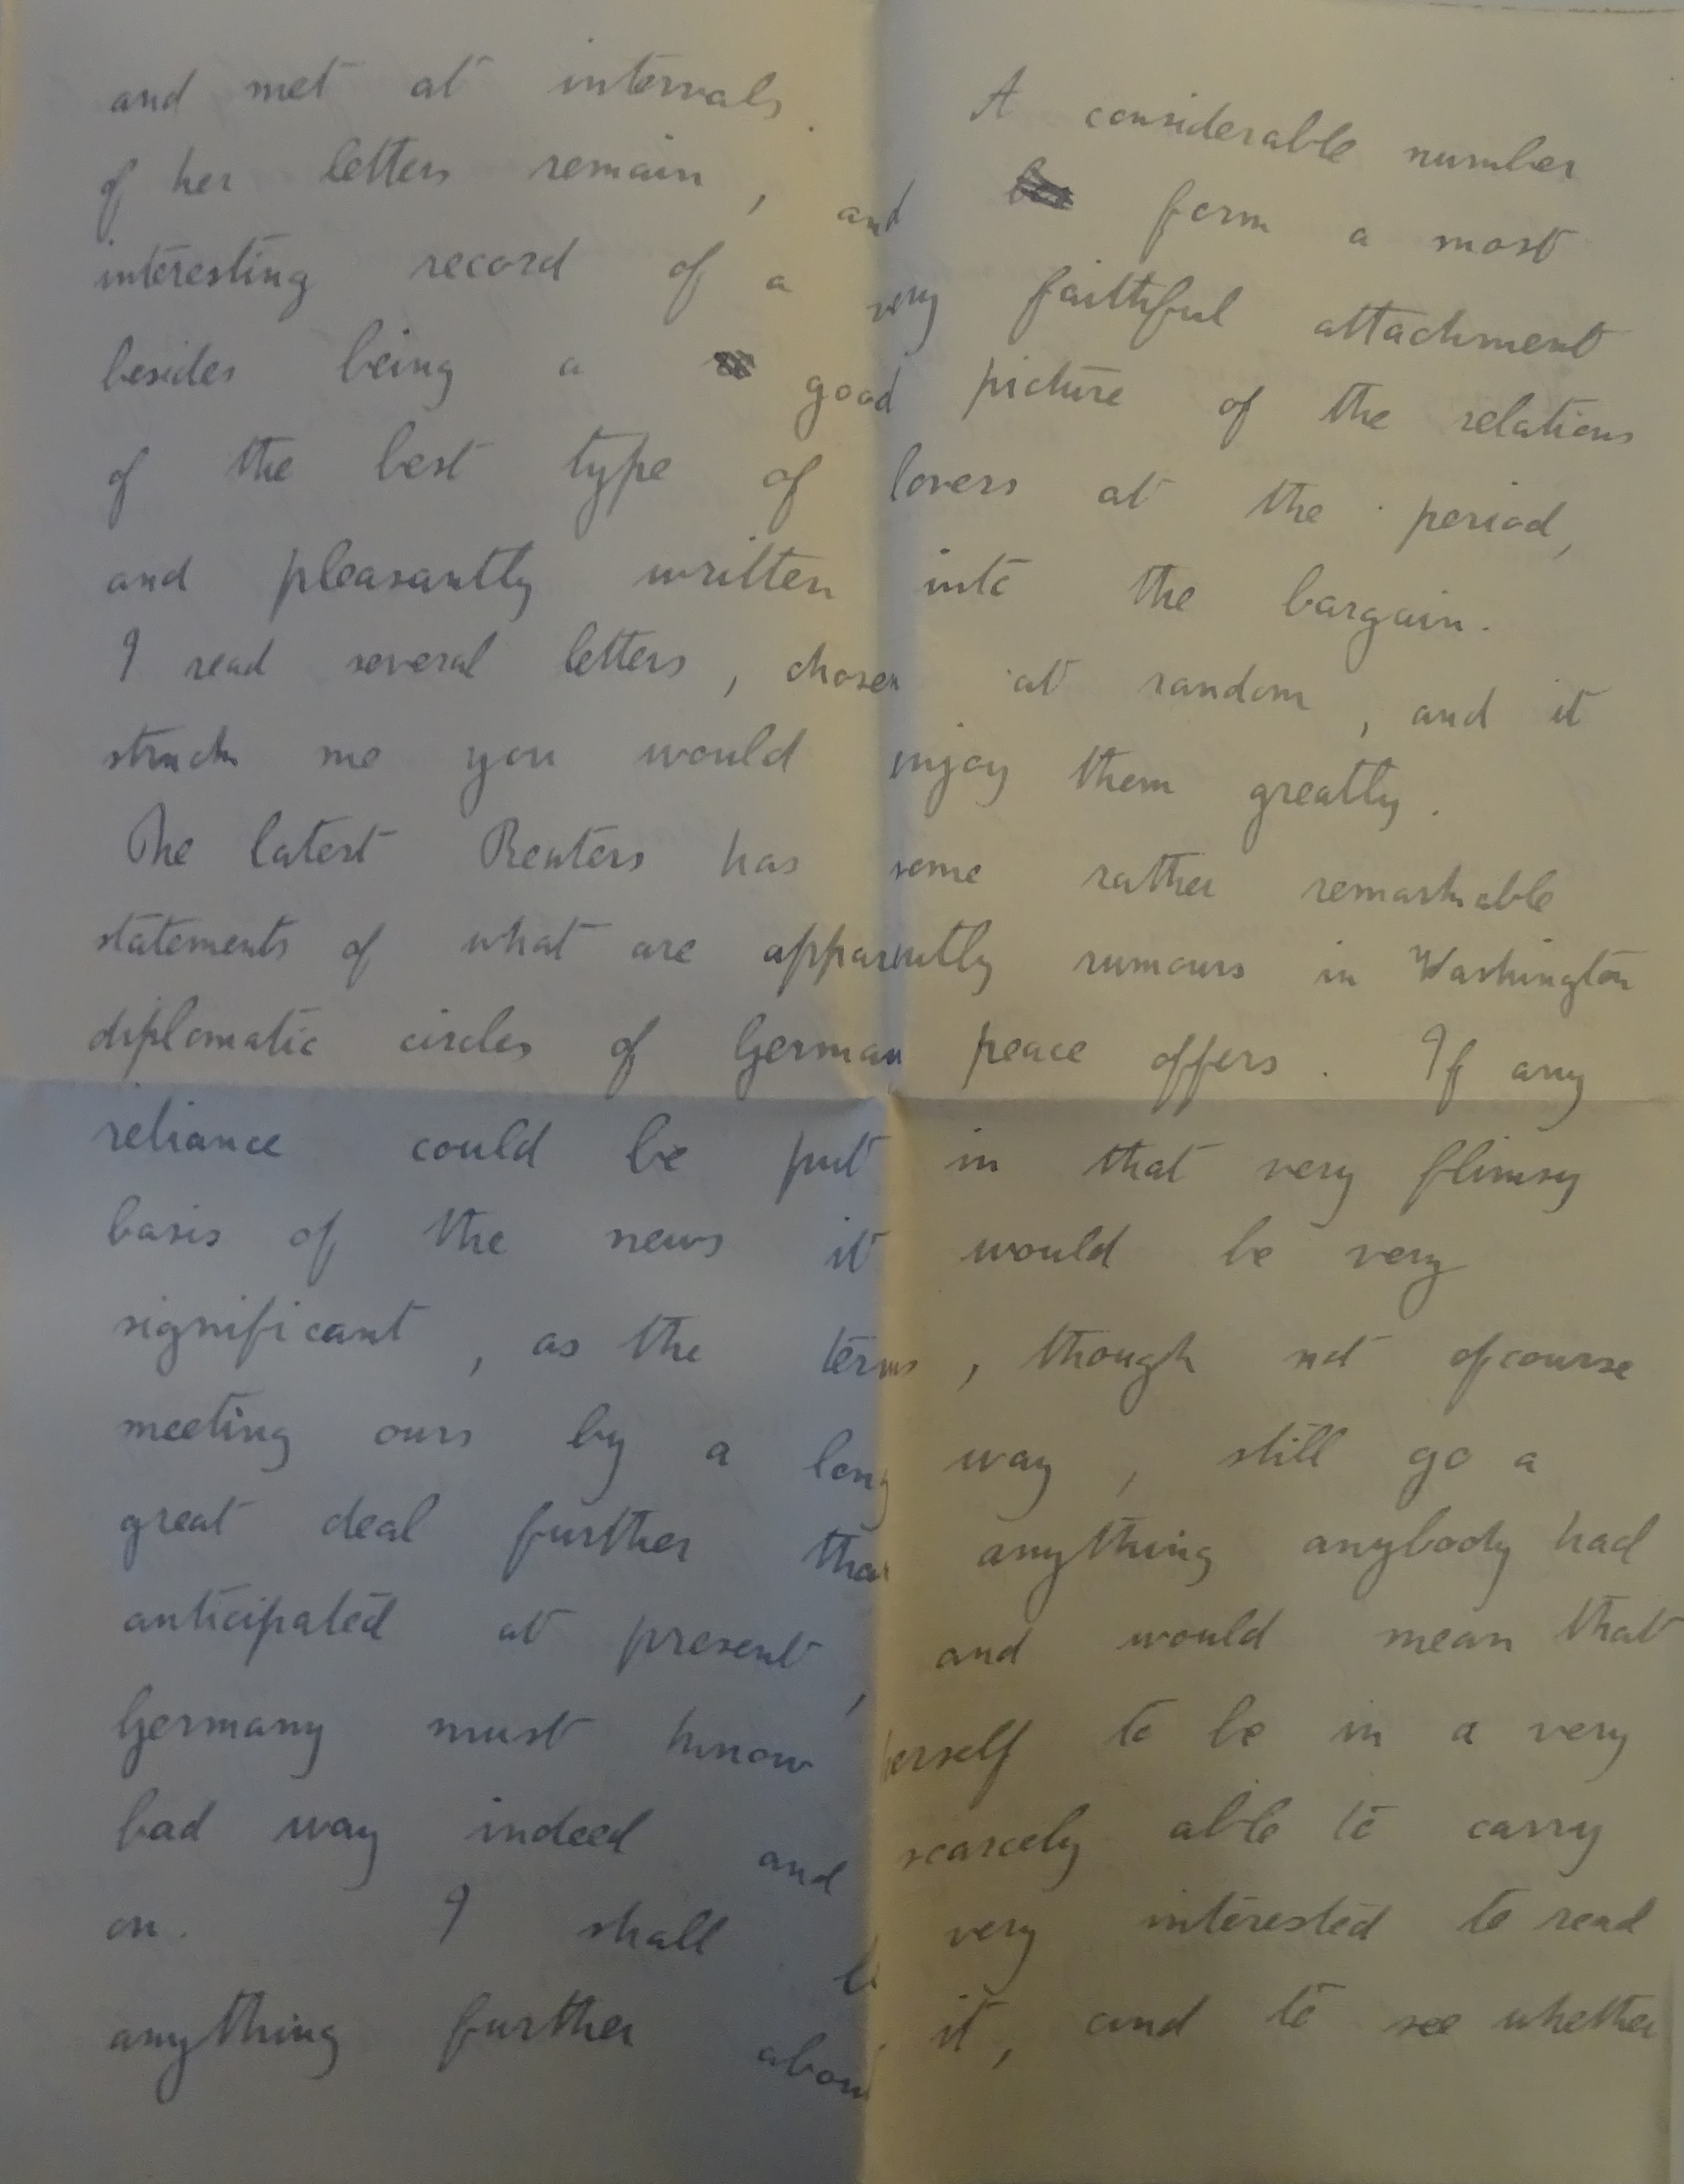 and met at intervals. A considerable number
of her letters remain, and form a most
interesting record of a very faithful attachment
besides being a good picture of the relations
of the best type of lovers at the period,
and pleasantly written into the bargain.
I read several letters, chosen at random, and it
struck me you would enjoy them greatly.
The latest Reuters has some rather remarkable
statements of what are apparently rumours in Washington
diplomatic circles of German peace offers. If any
reliance could be put in that very flimsy
basis of the news it would be very
significant, as the terms, though not ofcourse
meeting ours by a long way, still go a
great deal further than anything anybody had
anticipated at present, and would mean that
Germany must know herself to be in a very
bad way indeed and scarcely able to carry
on. I shall be very interested to read
anything further about it, and to see whether